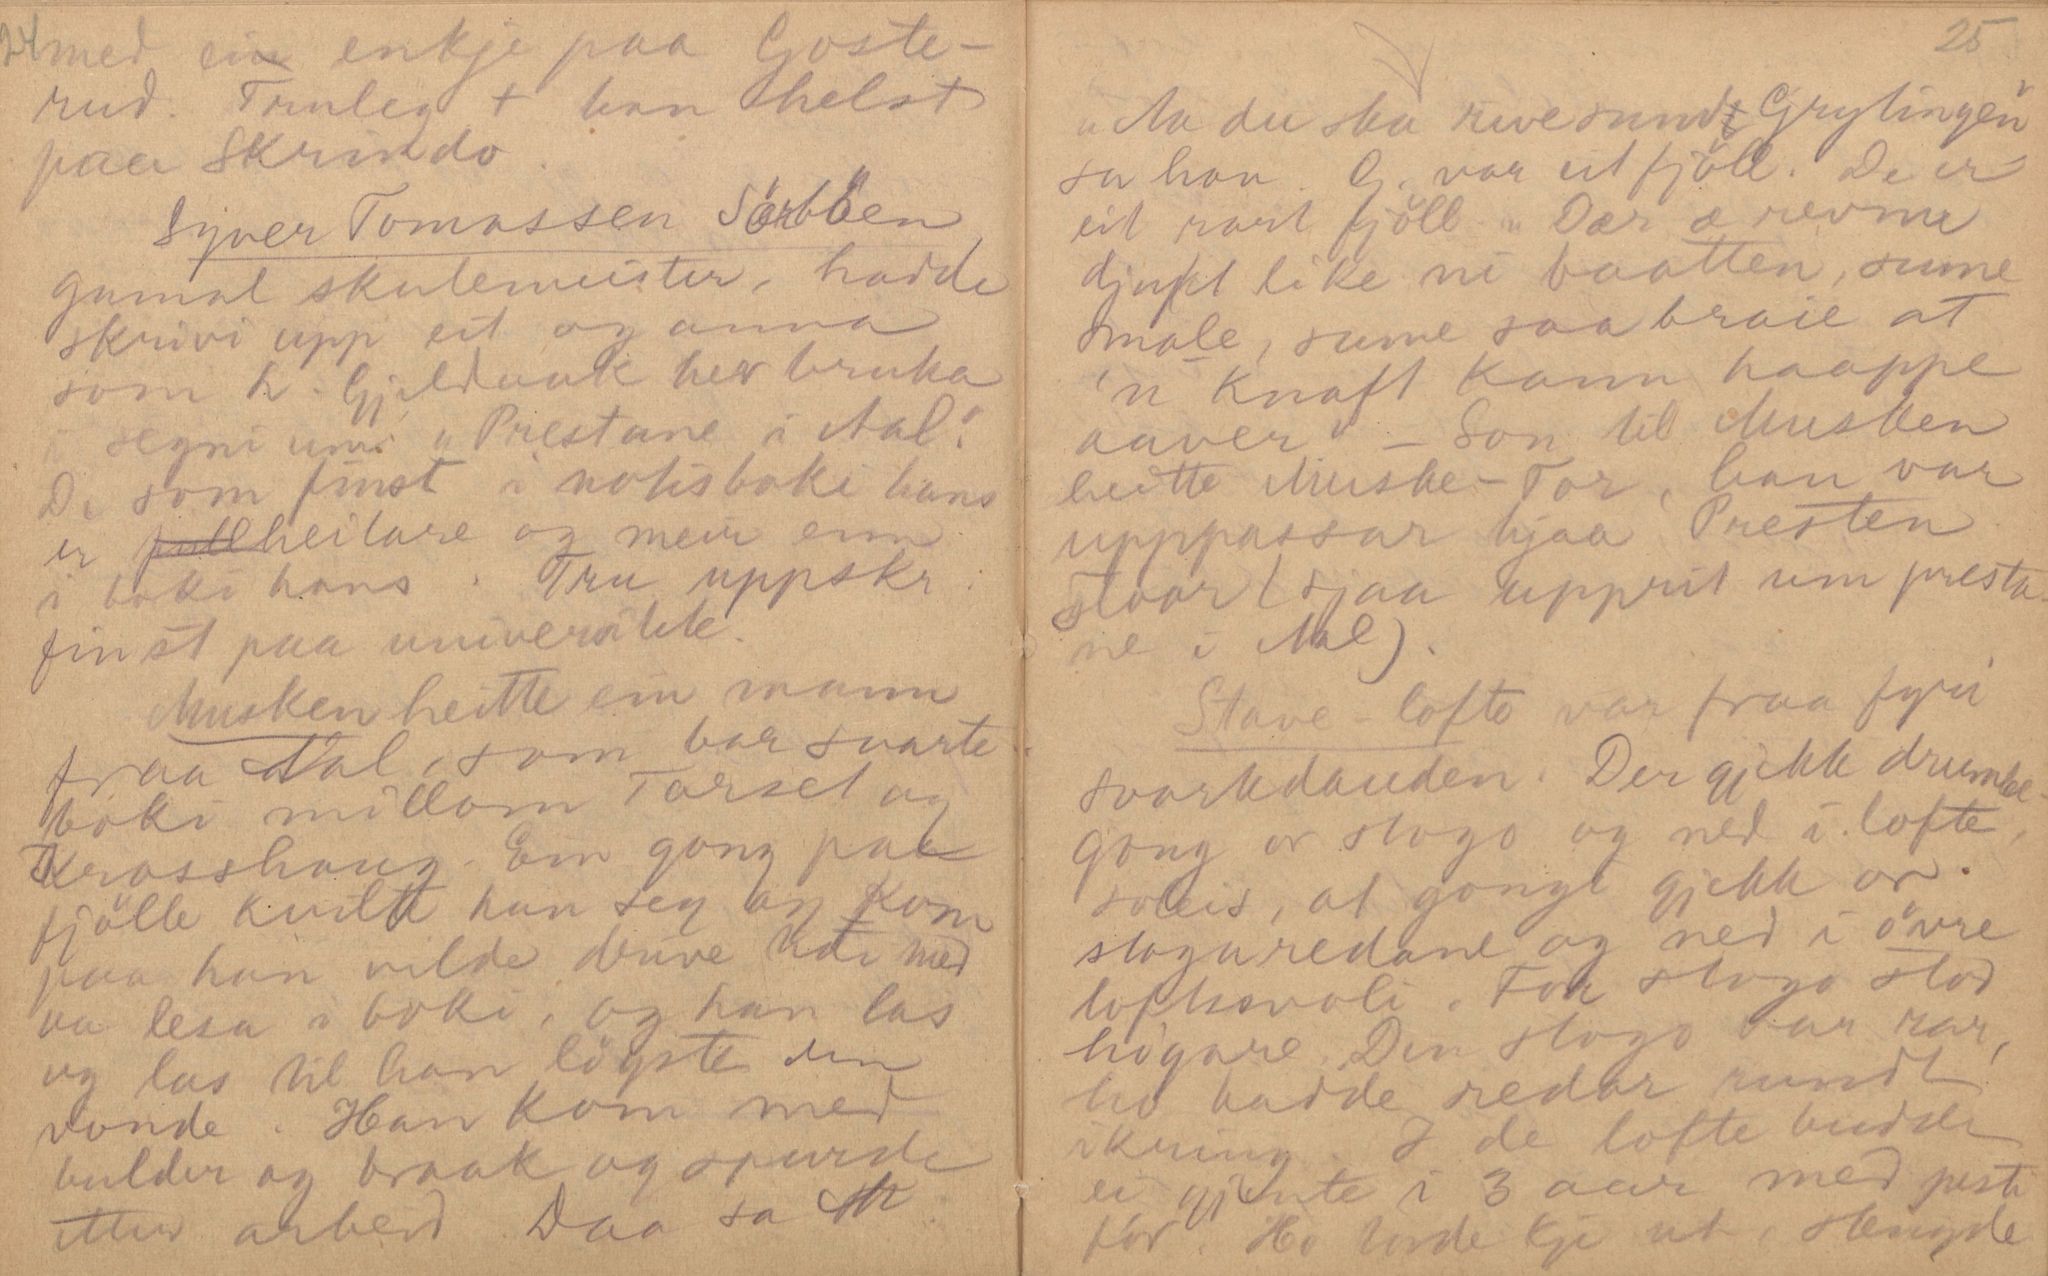 24
med ein enkje paa Goste-
rud. Truleg + han helst
paa Skrindo.
Syver Tomassen Sörböen,
gamal skulemeister, hadde
skrivi upp eit og anna
som h. Gjeldaak hev bruka
i segni um „Prestane i Aal".
De som finst i notisboki hans
er fullheilare og meir enn
i boki hans. Tru uppskr.
finst paa universitete.
Musken heitte ein mann
fraa Aal, som bar svarte-
boki millom Torset og
Krosshaug. Ein gong paa
fjölle kvilte han seg og kom
paa han vilde drive tidi med
aa lesa i boki, og han las
og las til han löyste den
vonde. Han kom med
bulder og braak og spurde
etter arbeid. Daa sa M.
25
„Aa du ska rive sund Grytingen"
sa han. G. var eit fjöll. De er
eit rart fjöll. „Dær æ revme
djupt like ni baatten, sume
smale, sume saa braie at
'n knaft kann haappe
aaver" – Son til Musken
heitte Muske-Tor, han var
upppassar hjaa Presten
Staar (sjaa upprit um presta-
ne i Aal).
Stave-lofte var fraa fyri
svartedauden. Der gjekk drumbe-
gong or stogo og ned i lofte,
soleis, at gongi gjekk or
stoguredane og ned i övre
loftsvali. For stogo stod
högare. Den stogo var rar,
ho hadde redar rundt
ikring. I de lofte budde
ei gjente i 3 aar med pesti
för. Ho torde kje ut, stengde